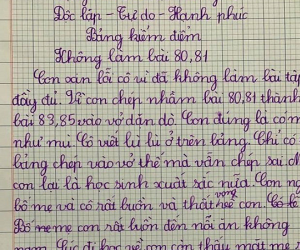 Độc lập - Tự do - Hạnh phúc
Bảng kiểm điểm
Không làm bài 80,81
Con xin lỗi cô vì đã không làm bài tập
đầy đủ. Vì con chép nhầm bài 80,81 thành
bài 83,85 vào vở dặn dò. Con đúng là con
như mù. Cô viết lù lù ở trên bảng. Chỉ có
bảng chép vào vở thế mà vẫn chép sai ch
con lại là học sinh xuất sắc nữa. Con ng
bố mẹ và cô rất buồn và thất vọng về con. Có lẽ
Bố mẹ con rất buồn đến nỗi ăn không
đi học về con còn thấy mắt mẹ